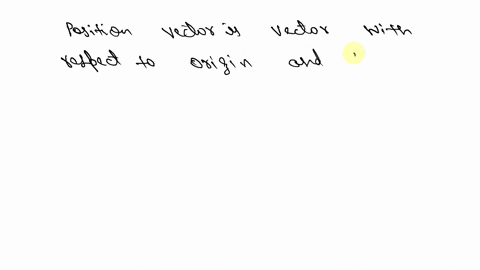 Position vector is vector with
respect to origin and